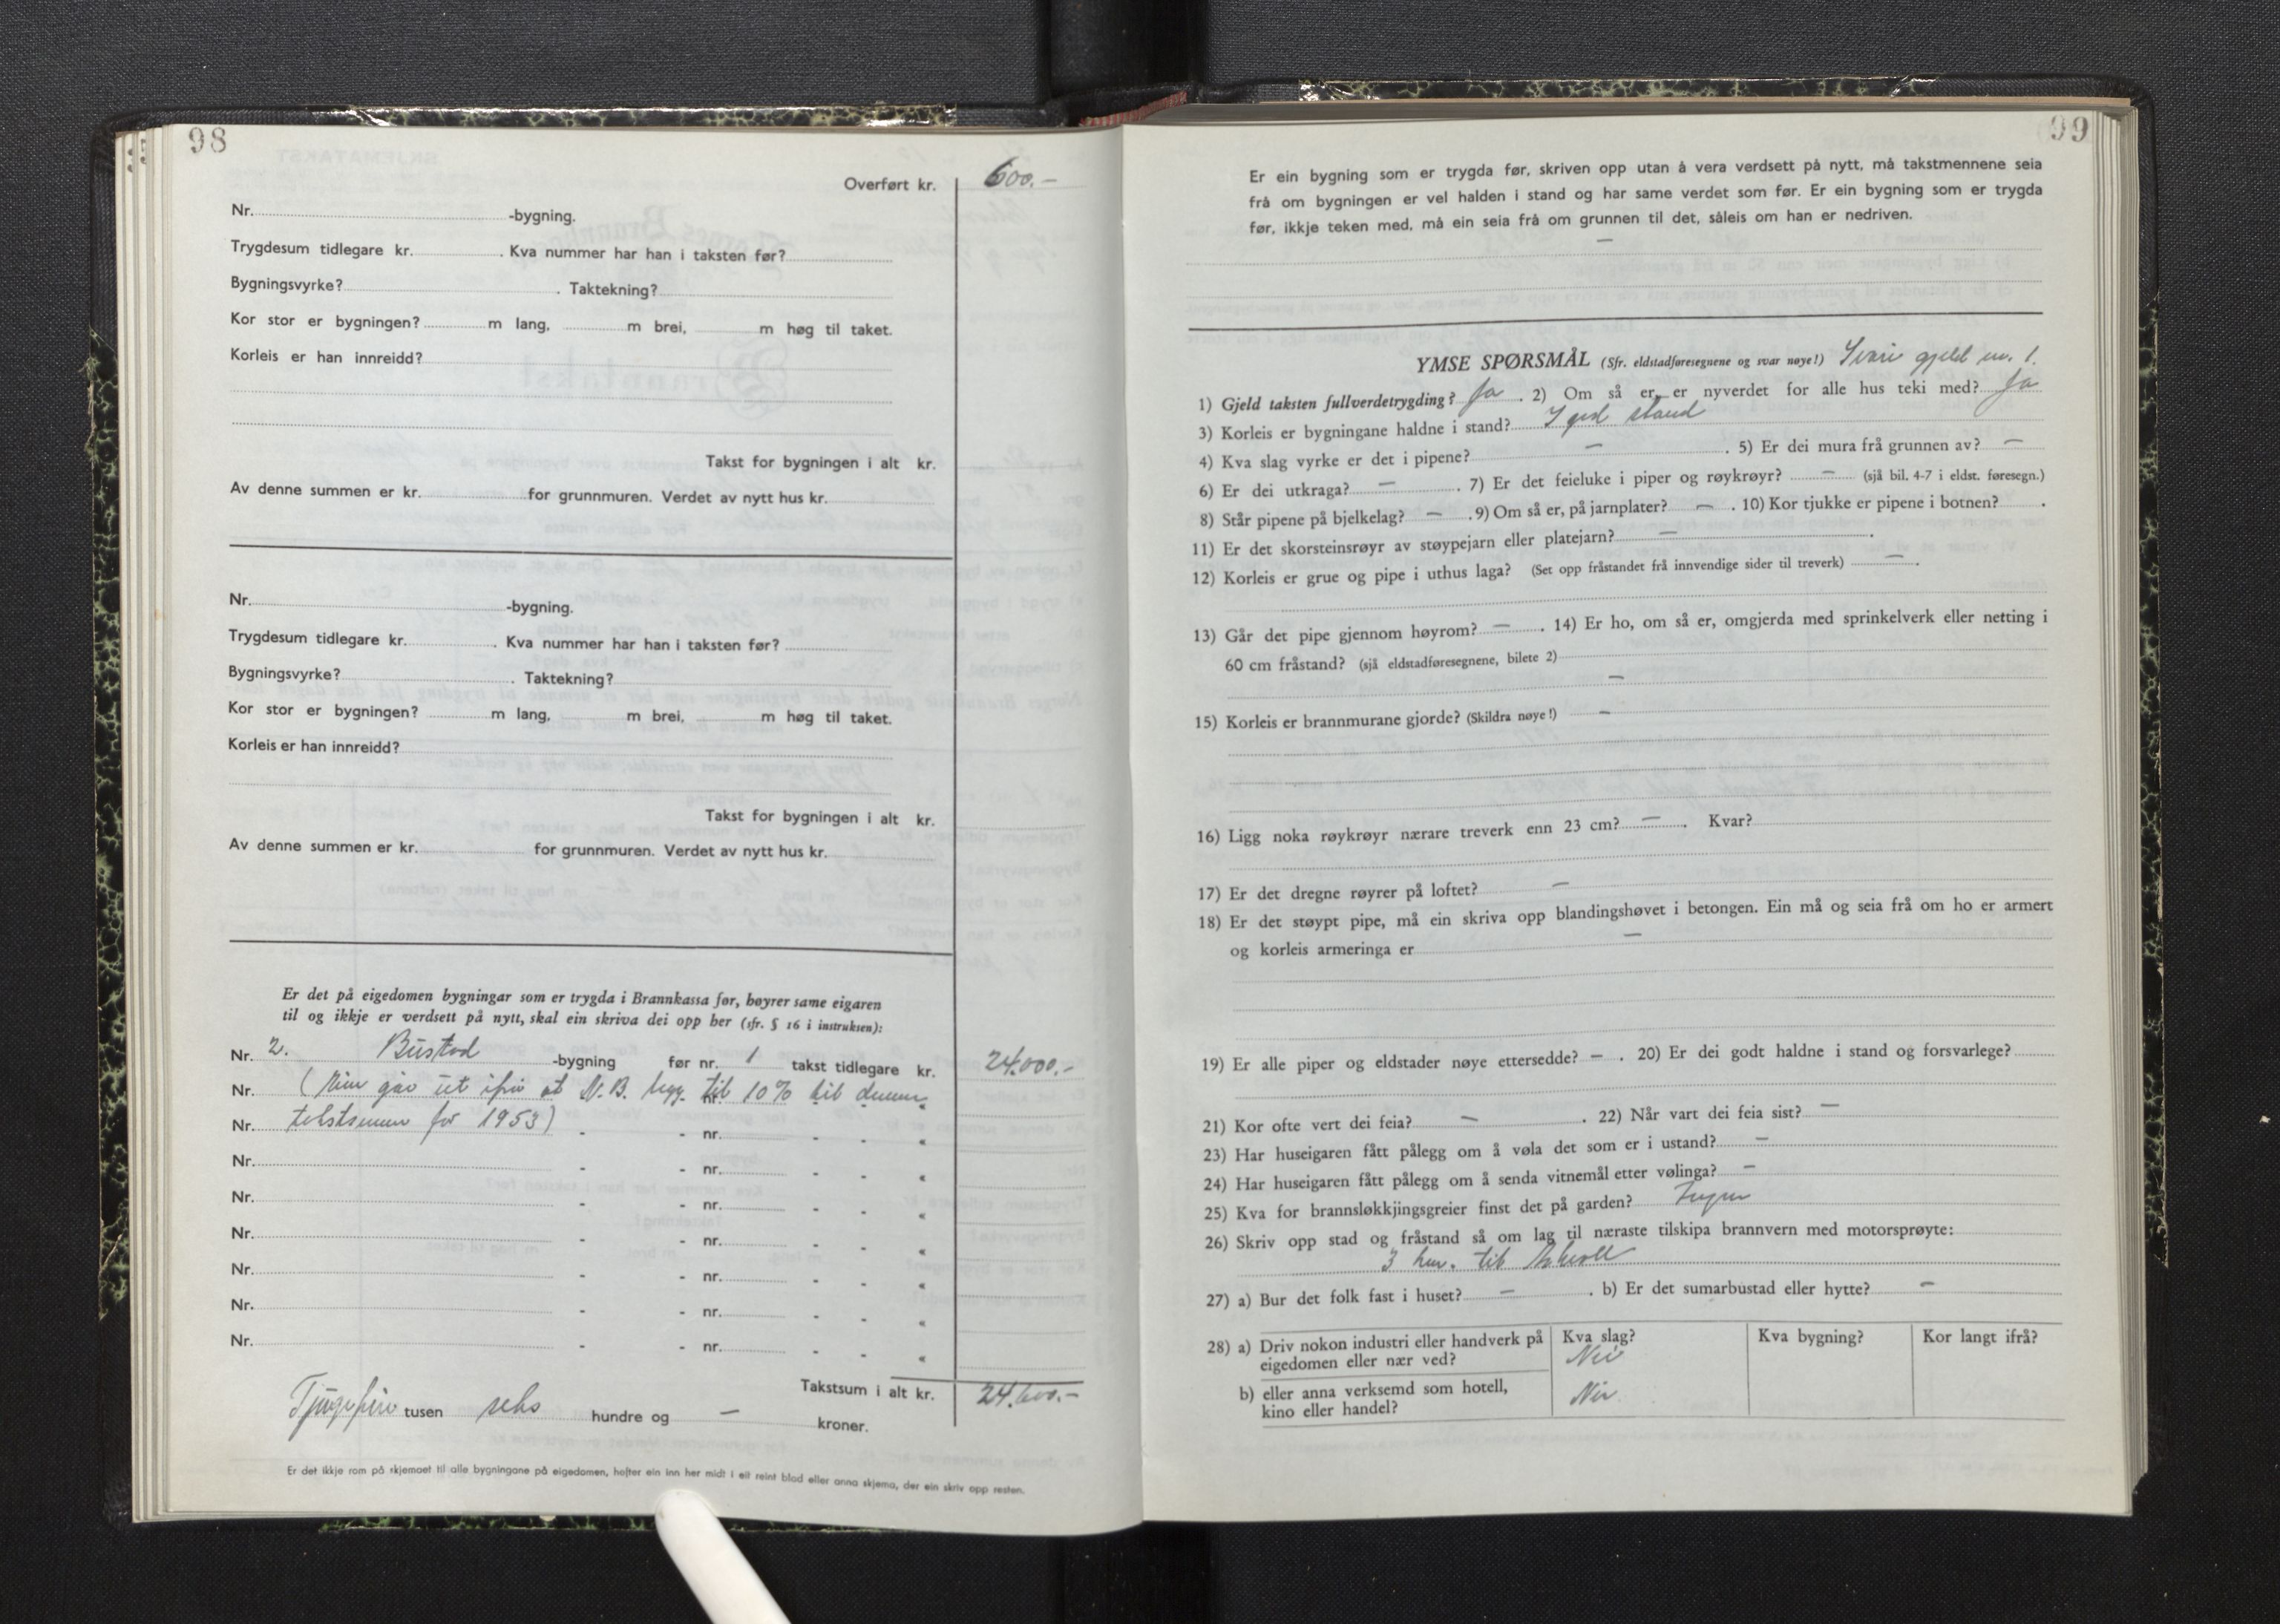 98
Overført kr. 600.-
Nr. -bygning.
Trygdesum tidlegare kr. . Kva nummer har han i taksten før?
Bygningsvyrke? . Taktekning?
Kor stor er bygningen? m lang, m brei, m høg til taket.
Korleis er han innreidd?
Takst for bygningen i alt kr.
Av denne summen er kr. for grunnmuren. Verdet av nytt hus kr.
Nr. -bygning.
Trygdesum tidlegare kr. . Kva nummer har han i taksten før?
Bygningsvyrke? . Taktekning?
Kor stor er bygningen? m lang, m brei, m høg til taket.
Korleis er han innreidd?
Takst for bygningen i alt kr.
Av denne summen er kr. for grunnmuren. Verdet av nytt hus kr.
Er det på eigedomen bygningar som er trygda i Brannkassa før, høyrer same eigaren
til og ikkje er verdsett på nytt, skal ein skriva dei opp her (sfr. § 16 i instruksen):
Nr. 2. Bustad -bygning før nr. 1 takst tidlegare kr. 24.000.-
Nr. ( går ut ifrå at N.B. legg til 10% til denne "
Nr. for 1953) - - nr. - - "
Nr. - - nr. - - "
Nr. - - nr. - - "
Nr. - - nr. - - "
Nr. - - nr. - - "
Nr. - - nr. - - "
Nr. - - nr. - - "
Takstsum i alt kr. 24.600.-
Tjugefire tusen seks hundre og — kroner.
Er det ikkje rom på skjemaet til alle bygningane på eigedomen, hefter ein inn her midt i eit reint blad eller anna skjema, der ein skriv opp resten.
99
Er ein bygning som er trygda før, skriven opp utan å vera verdsett på nytt, må takstmennene seia
frå om bygningen er vel halden i stand og har same verdet som før. Er ein bygning som er trygda
før, ikkje teken med, må ein seia frå om grunnen til det, såleis om han er nedriven.
—
YMSE SPØRSMÅL (Sfr. eldstadføresegnene og svar nøye!) Svari gjeld nr. 1.
1) Gjeld taksten fullverdetrygding? Ja . 2) Om så er, er nyverdet for alle hus teki med? Ja
3) Korleis er bygningane haldne i stand? I god stand
4) Kva slag vyrke er det i pipene? — . 5) Er dei mura frå grunnen av? —
6) Er dei utkraga? — . 7) Er det feieluke i piper og røykrøyr? — (sjå bil. 4-7 i eldst. føresegn.)
8) Står pipene på bjelkelag? — . 9) Om så er, på jarnplater? — . 10) Kor tjukke er pipene i botnen? .
11) Er det skorsteinsrøyr av støypejarn eller platejarn? — .
12) Korleis er grue og pipe i uthus laga? (Set opp fråstandet frå innvendige sider til treverk) — .
13) Går det pipe gjennom høyrom? — . 14) Er ho, om så er, omgjerda med sprinkelverk eller netting i
60 cm fråstand? (sjå eldstadføresegnene, bilete 2)
—
15) Korleis er brannmurane gjorde? (Skildra nøye!) —
16) Ligg noka røykrøyr nærare treverk enn 23 cm? — . Kvar?
17) Er det dregne røyrer på loftet? —
18) Er det støypt pipe, må ein skriva opp blandingshøvet i betongen. Ein må og seia frå om ho er armert
og korleis armeringa er —
19) Er alle piper og eldstader nøye ettersedde? — . 20) Er dei godt haldne i stand og forsvarlege?
21) Kor ofte vert dei feia? — . 22) Når vart dei feia sist? —
23) Har huseigaren fått pålegg om å vøla det som er i ustand? —
24) Har huseigaren fått pålegg om å senda vitnemål etter vølinga? —
25) Kva for brannsløkkjingsgreier finst det på garden? Ingen
26) Skriv opp stad og fråstand så om lag til næraste tilskipa brannvern med motorsprøyte:
3 km. til Askvoll
27) a) Bur det folk fast i huset? — . b) Er det sumarbustad eller hytte? —
28) a) Driv nokon industri eller handverk på Kva slag? Kva bygning? Kor langt ifrå?
eigedomen eller nær ved? Nei
b) eller anna verksemd som hotell, Nei
kino eller handel?